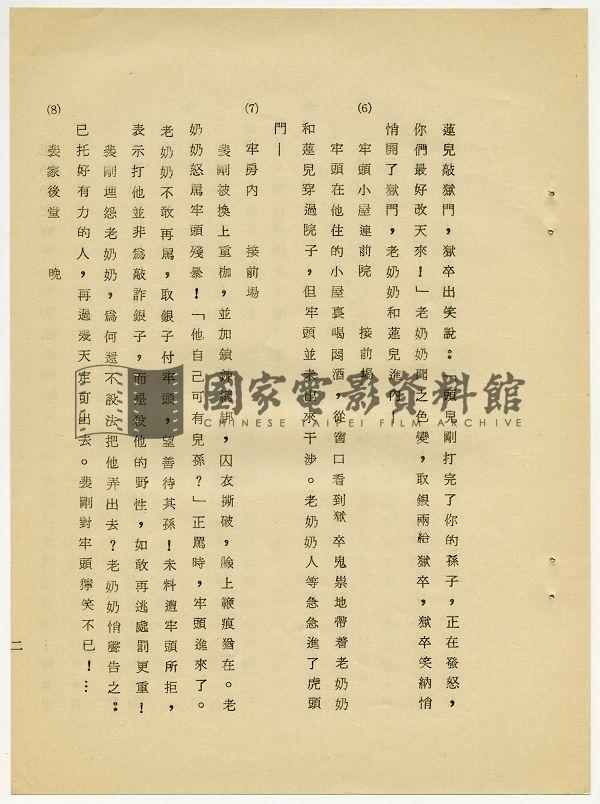 蓮兒敲獄門，獄卒出笑說：「頭兒剛打完了你的孫子，正在發怒，
你們最好改天來！」老奶奶聞之色變，取銀兩給獄卒，獄卒笑納悄
悄開了獄門，老奶奶和蓮兒進內—
(6) 牢頭小屋連前院　接前場
牢頭在他住的小屋裏喝悶酒，從窗口看到獄卒鬼祟地帶着老奶奶
和蓮兒穿過院子，但牢頭並未出來干涉。老奶奶人等急急進了虎頭
門—
(7) 牢房內　接前場
裴剛被換上重枷，並加鎖綑綁，囚衣撕破，臉上鞭痕猶在。老
奶奶怒罵牢頭殘暴！「他自己可有兒孫？」正罵時，牢頭進來了。
老奶奶不敢再罵，取銀子付牢頭，望善待其孫！未料遭牢頭所拒，
表示打他並非為敲詐銀子，而是殺他的野性，如敢再逃處罰更重！
裴剛埋怨老奶奶，為何還不設法把他弄出去？老奶奶悄聲告之：
已托好有力的人，再過幾天定可出去。裴剛對牢頭獰笑不已！…
(8) 裴家後堂　晚
二
國家電影資料館
CHINESE TAIPEI FILM ARCHIVE